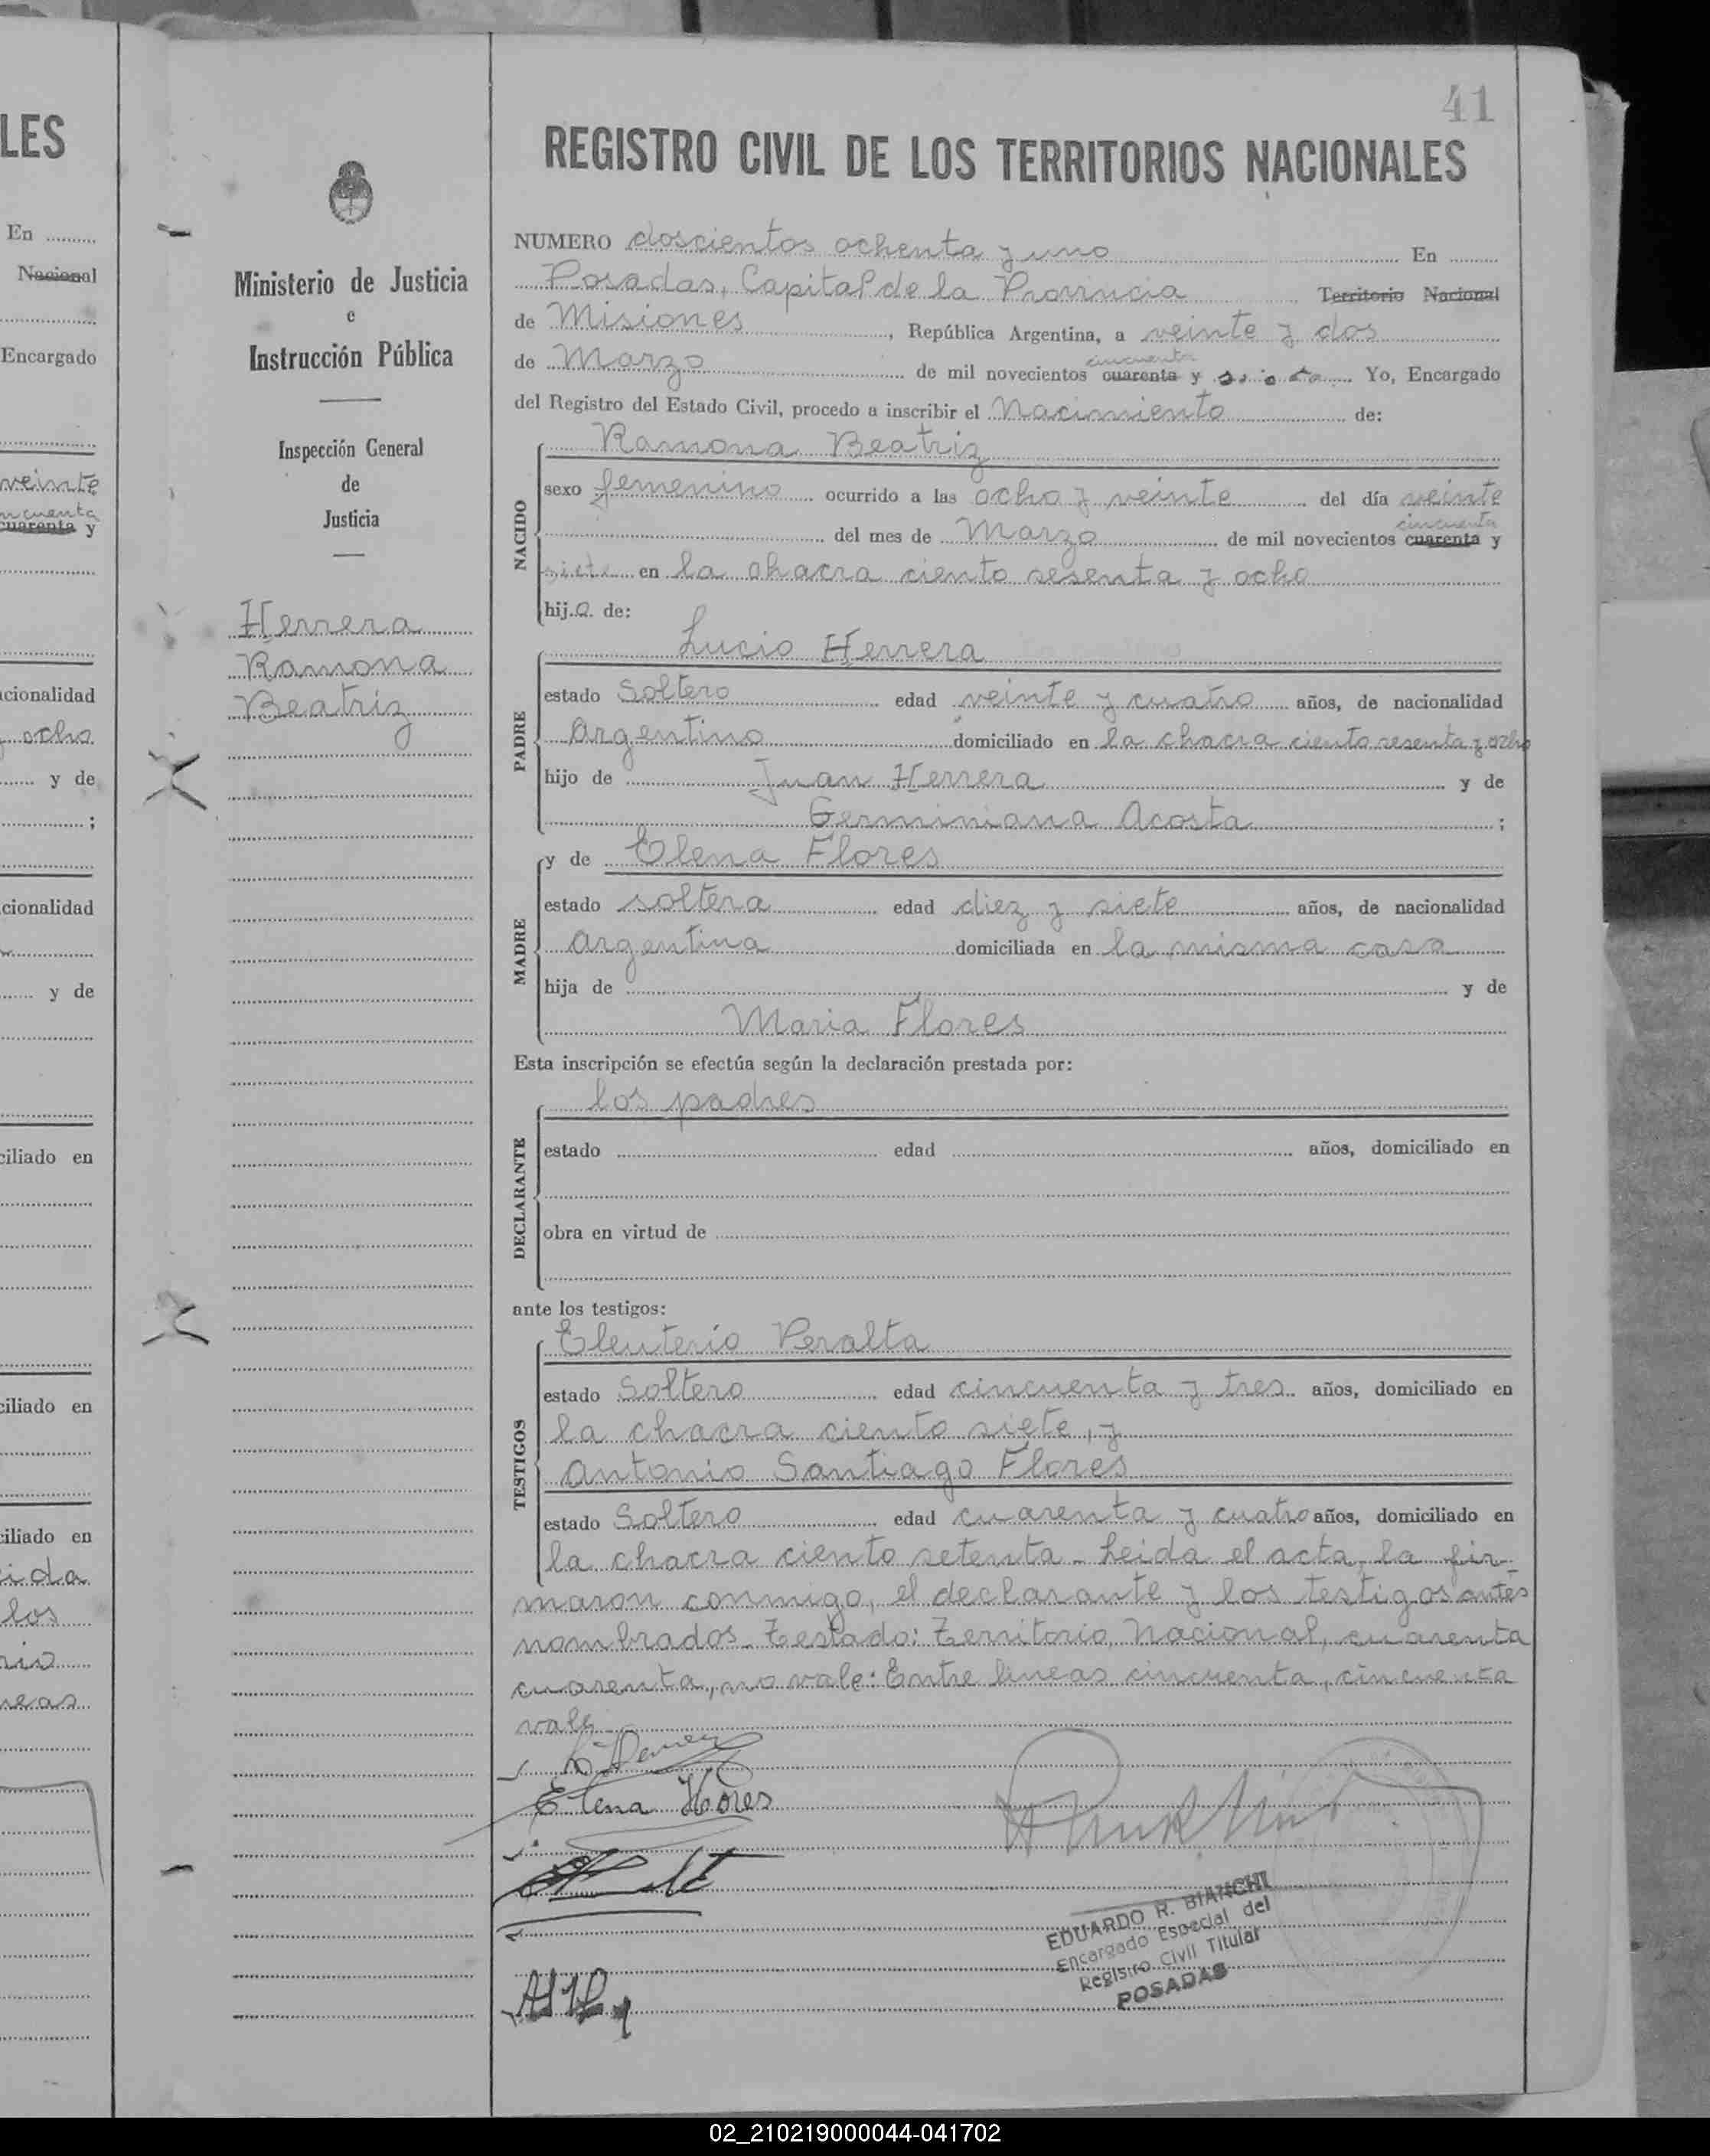 41
REGISTRO CIVIL DE LOS TERRITORIOS NACIONALES
NUMERO doscientos ochenta y uno En
Posadas, Capital de la Provincia Territorio Nacional
de Misiones, República Argentina, a veinte y dos
cincuenta
de Marzo de mil novecientos cuarenta y siete Yo, Encargado
del Registro del Estado Civil, procedo a inscribir el Nacimiento de:
NACIDO
Ramona Beatriz
sexo femenino ocurrido a las ocho y veinte del día veinte
cincuenta
del mes de Marzo de mil novecientos cuarenta y
siete en la chacra ciento sesenta y ocho
hija de:
PADRE
Lucio Herrera
estado Soltero edad veinte y cuatro años, de nacionalidad
Argentino domiciliado en la chacra ciento sesenta y ocho
hijo de Juan Herrera y de
Germiniana Acosta ;
MADRE
y de Elena Flores
estado soltera edad diez y siete años, de nacionalidad
Argentina domiciliada en la misma casa
hija de y de
Maria Flores
Esta inscripción se efectúa según la declaración prestada por:
DECLARANTE
los padres
estado edad años, domiciliado en
obra en virtud de
ante los testigos:
TESTIGOS
Eleuterio Peralta
estado Soltero edad cincuenta y tres años, domiciliado en
la chacra ciento siete, y
Antonio Santiago Flores
estado Soltero edad cuarenta y cuatro años, domiciliado en
la chacra ciento setenta - Leida el acta, la fir-
maron conmigo, el declarante y los testigos antes
nombrados. Testado: Territorio, Nacional, cuarenta
cuarenta, no vale: Entre lineas cincuenta, cincuenta
vale
Elena Flores
EDUARDO R. BIANCHI
Encargado Especial del
Registro Civil Titular
POSADAS
Ministerio de Justicia
e
Instrucción Pública
Inspección General
de
Justicia
Herrera
Ramona
Beatriz
LES
En
Nacional
Encargado
veinte
cuarenta y
cionalidad
ocho
y de
;
cionalidad
y de
ciliado en
ciliado en
ciliado en
los
02_210219000044-041702